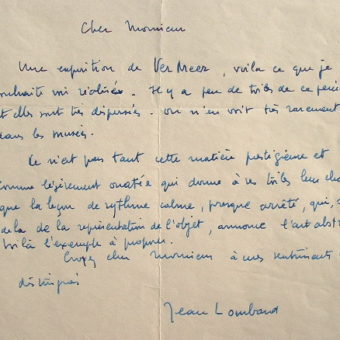 Cher Monsieur
Une exposition de Ver Meer, voila ce que je
souhaite voi réalisée. Il y a peu de toiles de ce pein
et elles sont très dispersées. On n'en voit très rarement
dans les musées.
Ce n'est pas tant cette matière prestigieuse et
comme légèrement ouatée qui donne à ces toiles leur cha
que la leçon de rythme calme, presque arrêté, qui,
dela de la représentation de l'objet, annonce l'art abst
Voilà l'exemple à proposer.
Croyez cher Monsieur à mes sentiments
distingués
Jean Lombard